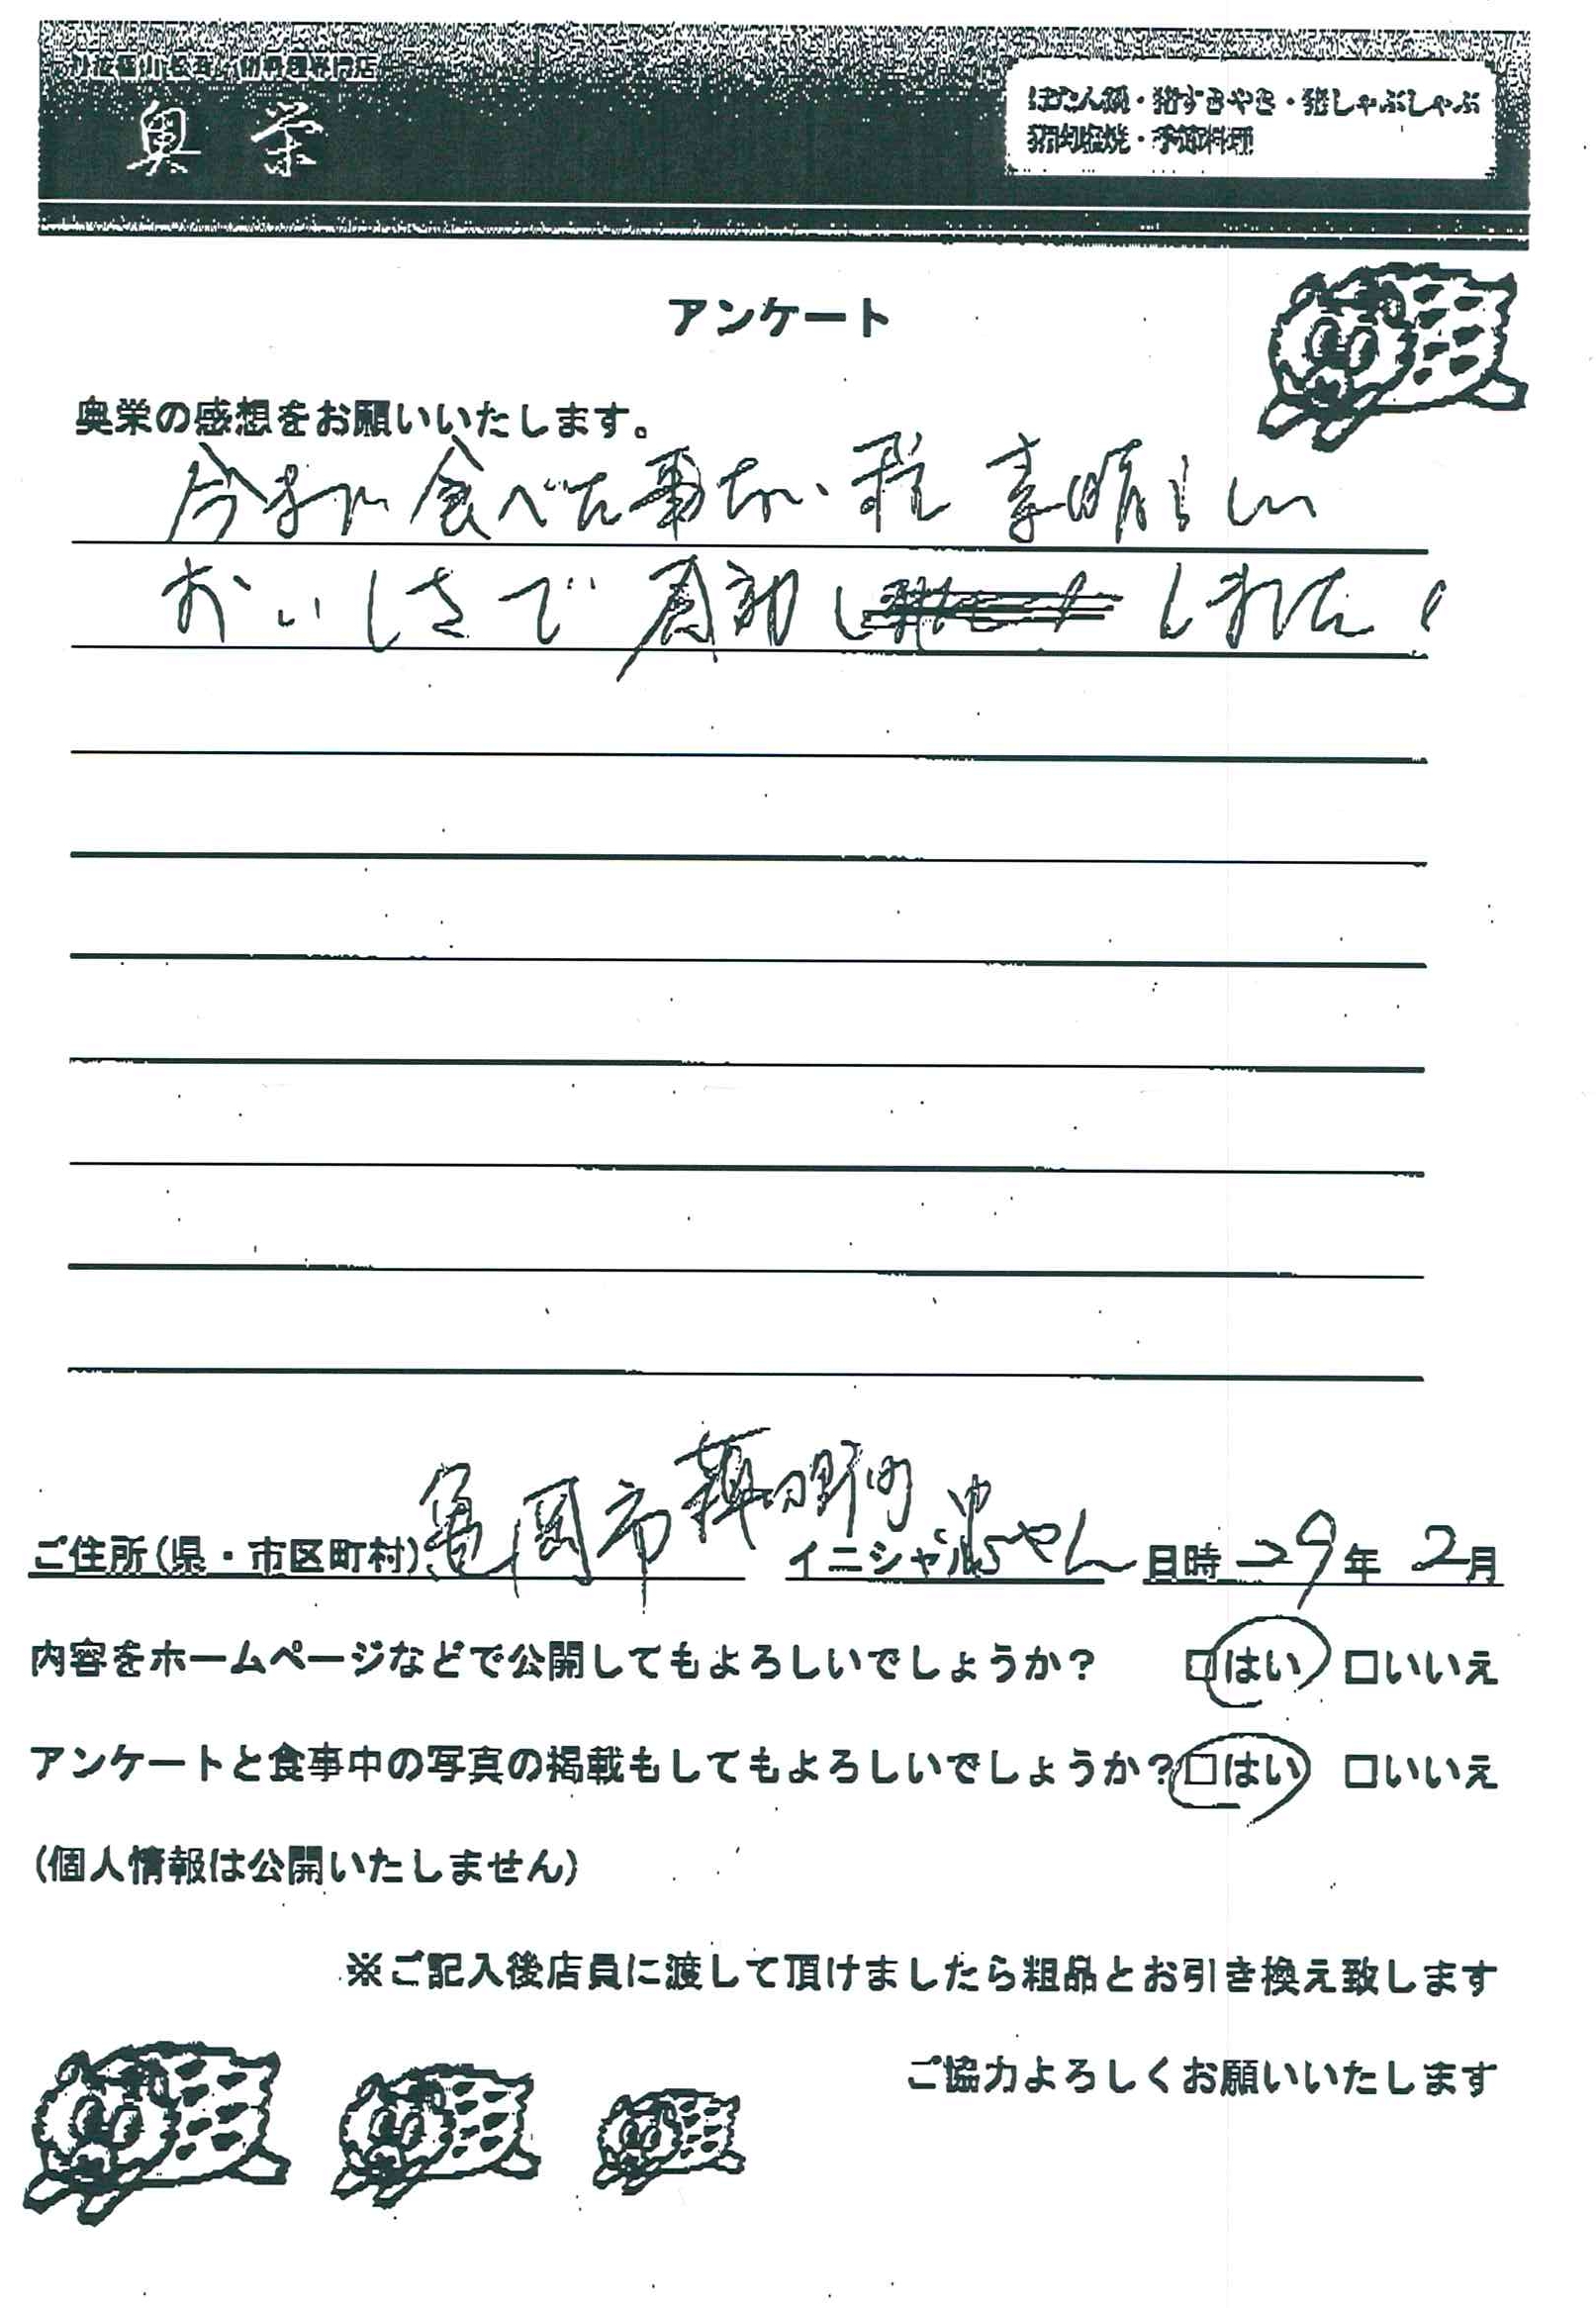 奥栄
ぼたん鍋・猪すきやき・猪しゃぶしゃぶ
猪肉塩焼・季節料理
アンケート
奥栄の感想をお願いいたします。
今まで食べた事ない程素晴らしい
おいしさで感動しました!
ご住所(県・市区町村)亀岡市薭田野町 イニシャル ちゃん 日時 29年 2月
内容をホームページなどで公開してもよろしいでしょうか? □はい □いいえ
アンケートと食事中の写真の掲載もしてもよろしいでしょうか?□はい □いいえ
(個人情報は公開いたしません)
※ご記入後店員に渡して頂けましたら粗品とお引き換え致します
ご協力よろしくお願いいたします